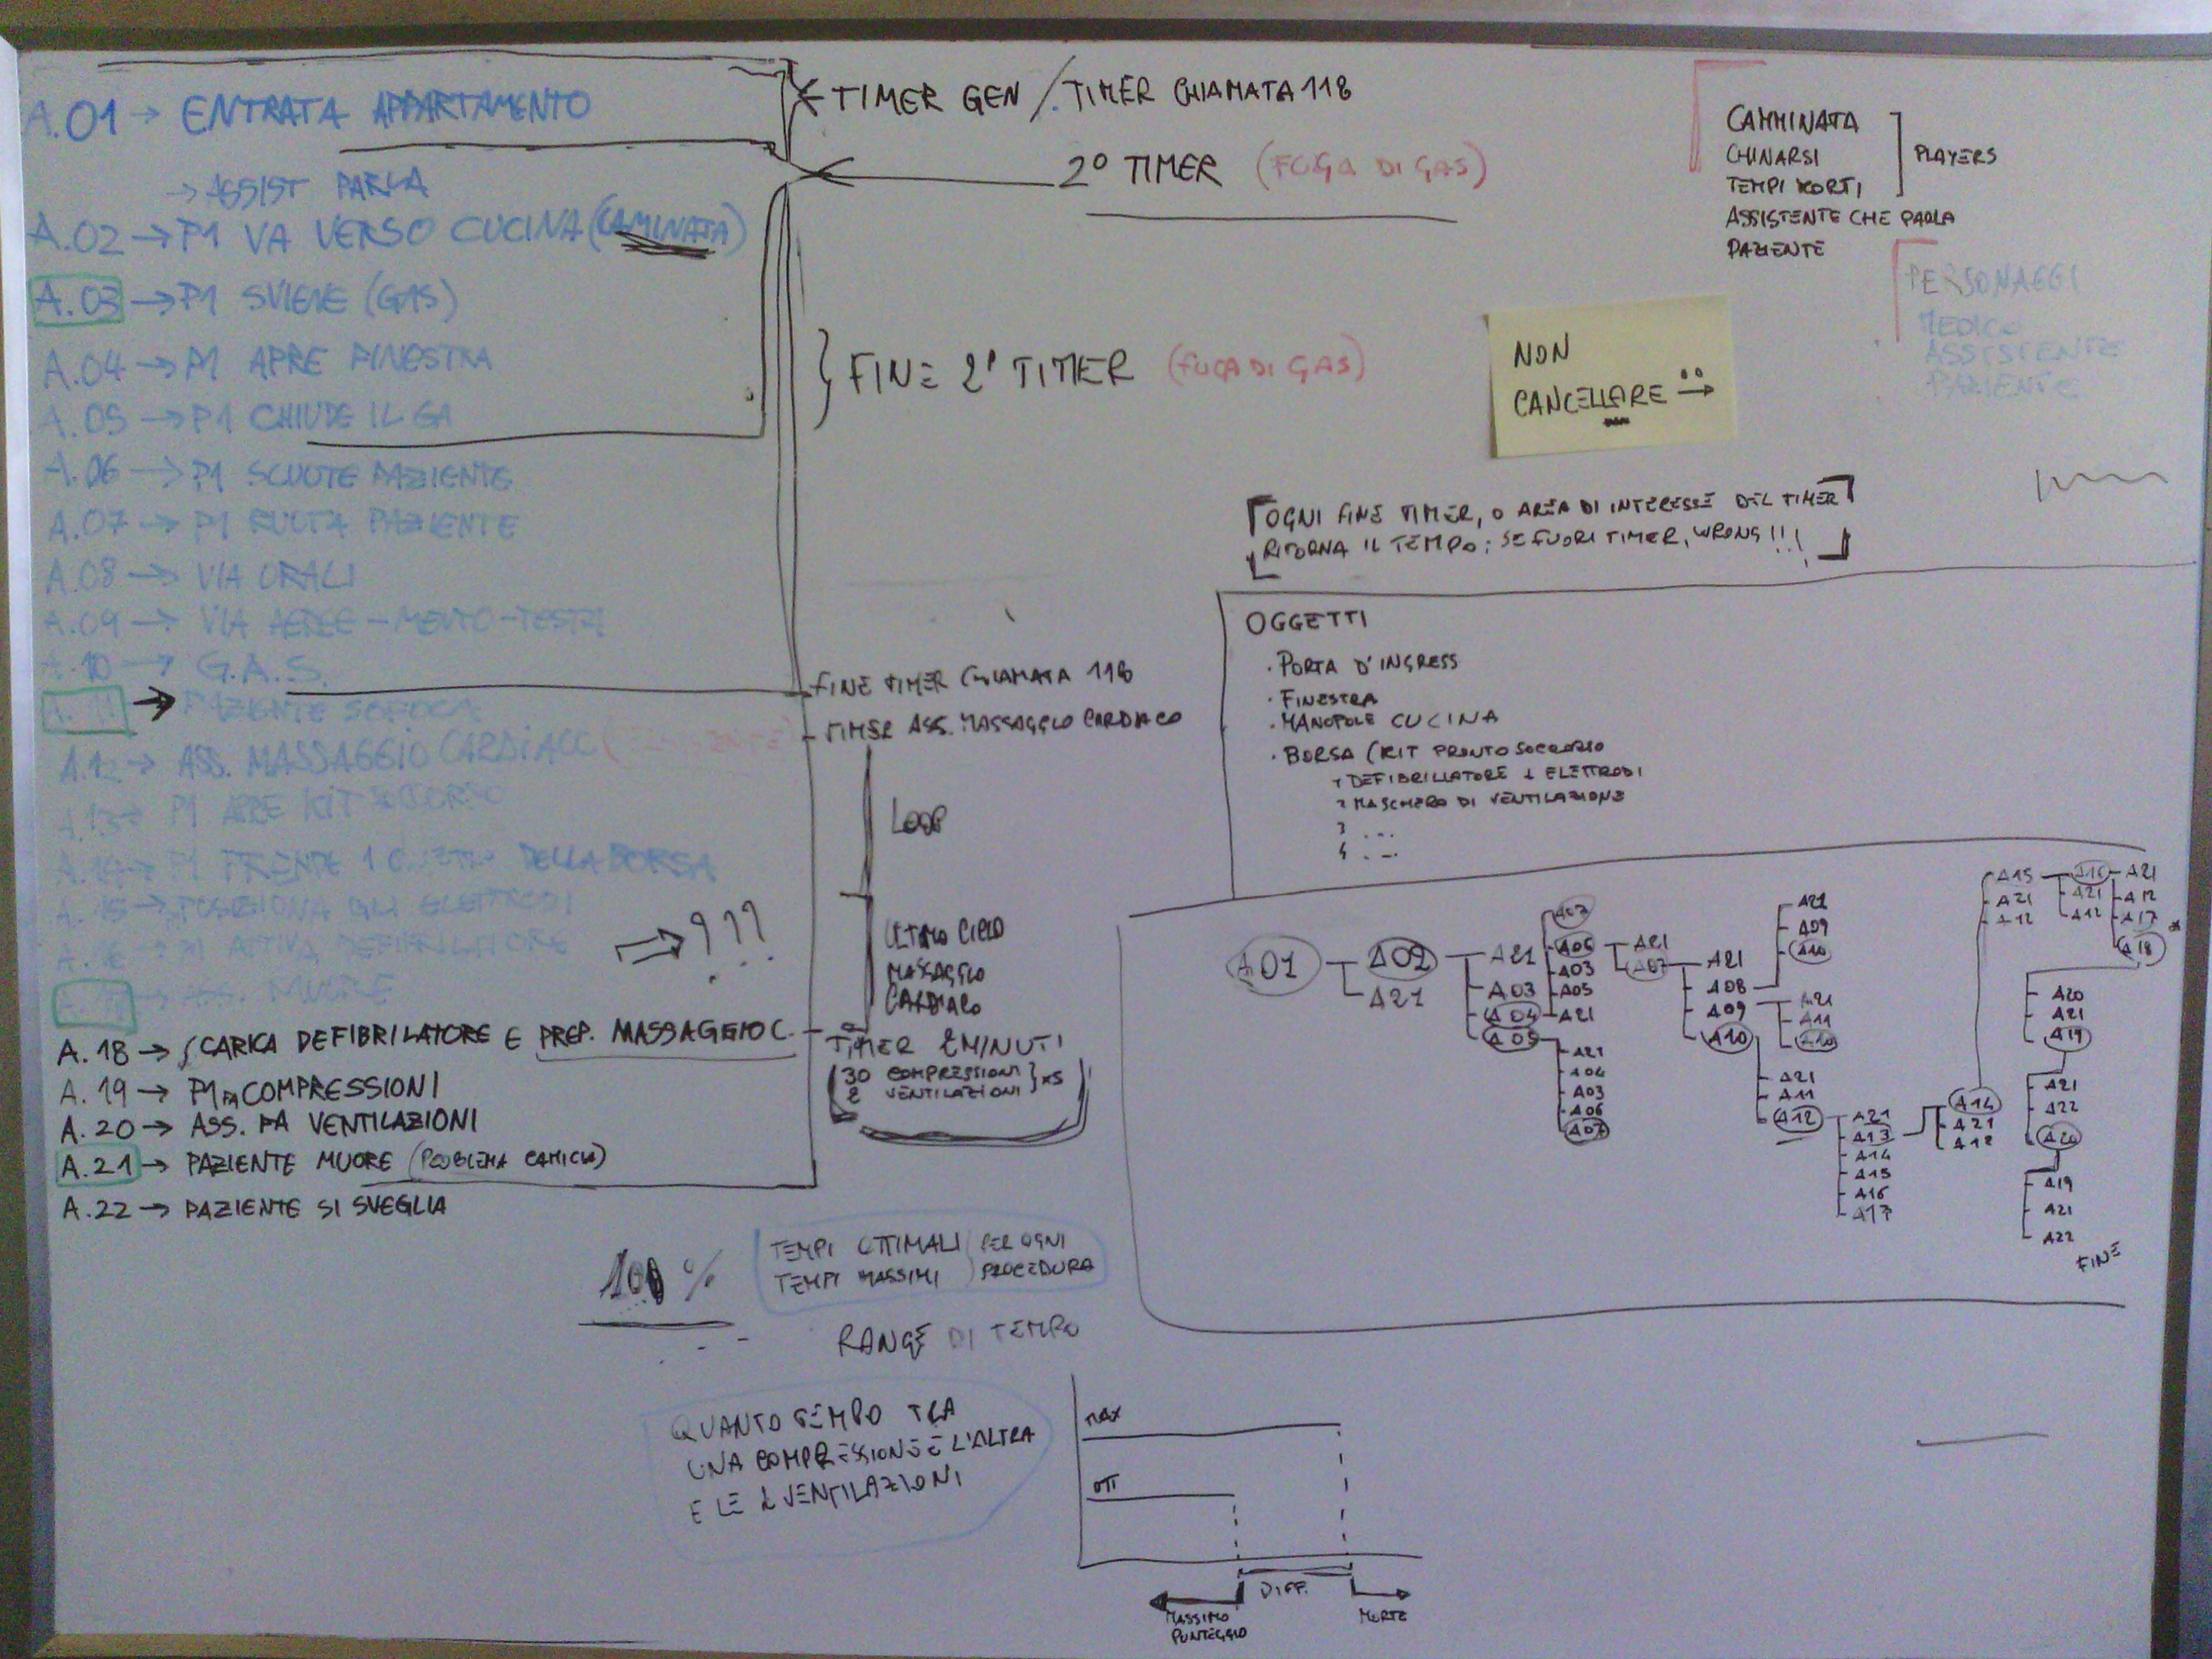 A.01 → ENTRATA APPARTAMENTO
→ ASSIST PARLA
A.02 → P1 VA VERSO CUCINA (CAMINATA)
A.03 → P1 SVIENE (GAS)
A.04 → P1 APRE FINESTRA
A.05 → P1 CHIUDE IL GA
A.06 → P1 SCUOTE PAZIENTE
A.07 → P1 RUOTA PAZIENTE
A.08 → VIA ORALI
A.09 → VIA AEREE - MENTO - TESTA
A.10 → G.A.S.
A.11 → PAZIENTE SOFOCA
A.12 → ASS. MASSAGGIO CARDIACC
A.13 → P1 APRE KIT SOCCORSO
P1 PRENDE 1 DELLA BORSA
A.15 → POSIZIONA GLI ELETTRODI
A.16 → P1 ATTIVA DEFIBRILATORE
MUORE
A.18 → SCARICA DEFIBRILATORE E PREP. MASSAGGIO C.
A.19 → P1 FA COMPRESSIONI
A.20 → ASS. FA VENTILAZIONI
A.21 → PAZIENTE MUORE (PROBLEMA CAMICIA)
A.22 → PAZIENTE SI SVEGLIA
TIMER GEN / TIMER CHIAMATA 118
2° TIMER (FUGA DI GAS)
FINE 2° TIMER (FUGA DI GAS)
FINE TIMER CHIAMATA 118
TIMER ASS. MASSAGGIO CARDIACO
LOOP
→ ???
ULTIMO CICLO
MASSAGGIO
CARDIACO
TIMER 2 MINUTI
30 COMPRESSIONI
2 VENTILAZIONI } x5
CAMMINATA
CHINARSI
TEMPI MORTI
PLAYERS
ASSISTENTE CHE PARLA
PAZIENTE
PERSONAGGI
MEDICO
ASSISTENTE
PAZIENTE
NON
CANCELLARE
OGNI FINE TIMER, O AREA DI INTERESSE DEL TIMER
RITORNA IL TEMPO; SE FUORI TIMER, WRONG!!!
OGGETTI
· PORTA D'INGRESS
· FINESTRA
· MANOPOLE CUCINA
· BORSA (KIT PRONTO SOCCORSO
1 DEFIBRILLATORE + ELETTRODI
2 MASCHERA DI VENTILAZIONE
3 ...
4 ...
A01
A02
A21
A21
A03
A04
A05
A07
A06
A03
A05
A21
A21
A04
A03
A06
A07
A21
A07
A21
A08
A09
A10
A21
A09
A10
A21
A11
A10
A21
A11
A12
A21
A13
A14
A15
A16
A17
A14
A21
A12
A15
A21
A12
A16
A21
A12
A21
A12
A17
A18
A20
A21
A19
A21
A22
A20
A19
A21
A22
FINE
100 %
TEMPI OTTIMALI
TEMPI MASSIMI
PER OGNI
PROCEDURA
RANGE DI TEMPO
QUANTO TEMPO TRA
UNA COMPRESSIONE E L'ALTRA
E LE 2 VENTILAZIONI
MAX
OTT
DIFF.
MASSIMO
PUNTEGGIO
MORTE